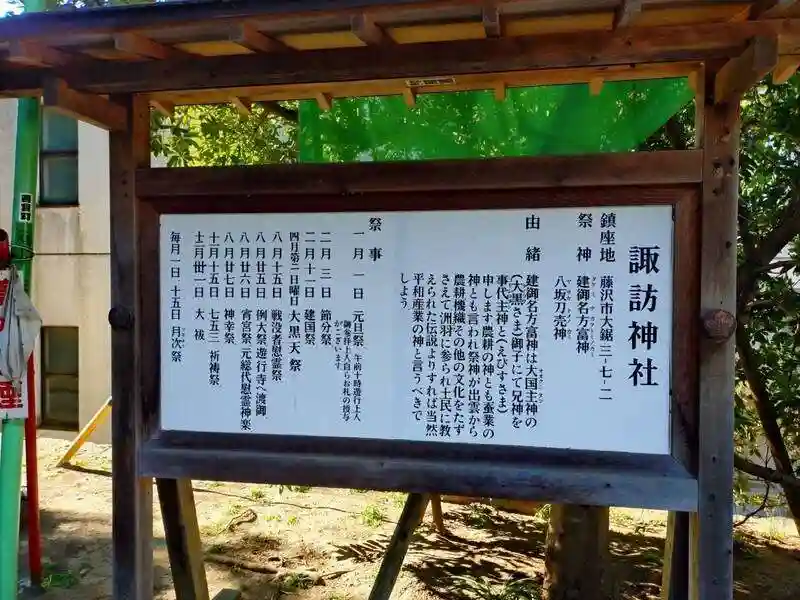 諏訪神社
鎮座地　藤沢市大鋸三−七−二
祭神　建御名方富神
八坂刀売神
由緒　建御名方富神は大国主神の
(大黒さま)御子にて兄神を
事代主神と(えびすさま)
申します農耕の神とも蚕業の
神とも言われ祭神が出雲から
農耕機織その他の文化をたず
さえて洲羽に参られ土民に教
えられた伝説よりすれば当然
平和産業の神と言うべきで
しょう
祭事
一月一日　元旦祭　午前十時遊行上人
御参拝上人自らお札の授与
がございます
二月三日　節分祭
二月十一日　建国祭
四月第二日曜日　大黒天祭
八月十五日　戦没者慰霊祭
八月廿五日　例大祭遊行寺へ渡御
八月廿六日　宵宮祭元総代慰霊神楽
八月廿七日　神幸祭
十一月十五日　七五三祈祷祭
十二月卅一日　大祓
毎月一日　十五日　月次祭